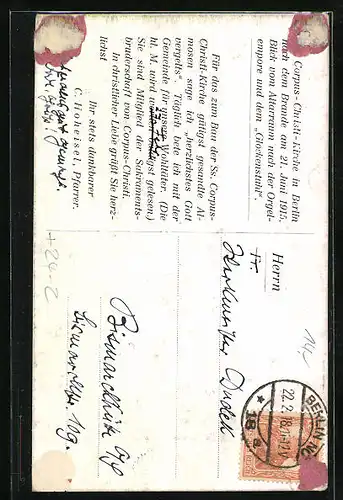 Corpus-Christi-Kirche in Berlin
nach dem Brande am 21. Juni 1915.
Blick vom Altarraum nach der Orgel-
empore und dem „Glockenstuhl“.
Für das zum Bau der Ss. Corpus-
Christi-Kirche gütigst gesandte Al-
mosen sage ich „herzlichstes Gott
vergelts“. Täglich bete ich mit der
Gemeinde für unsere Wohltäter. (Die
hl. M. wird gelesen.)
Sie sind Mitglied der Sakraments-
bruderschaft von Corpus-Christi.
In christlicher Liebe grüßt Sie herz-
lichst
Ihr stets dankbarer
C. Hoheisel, Pfarrer.
Herrn
Fr.
Dudek
Bismarckhütte O/S
Bismarckstr. 119.
BERLIN NO
22.2.18.
18 a
+24-2
14,-